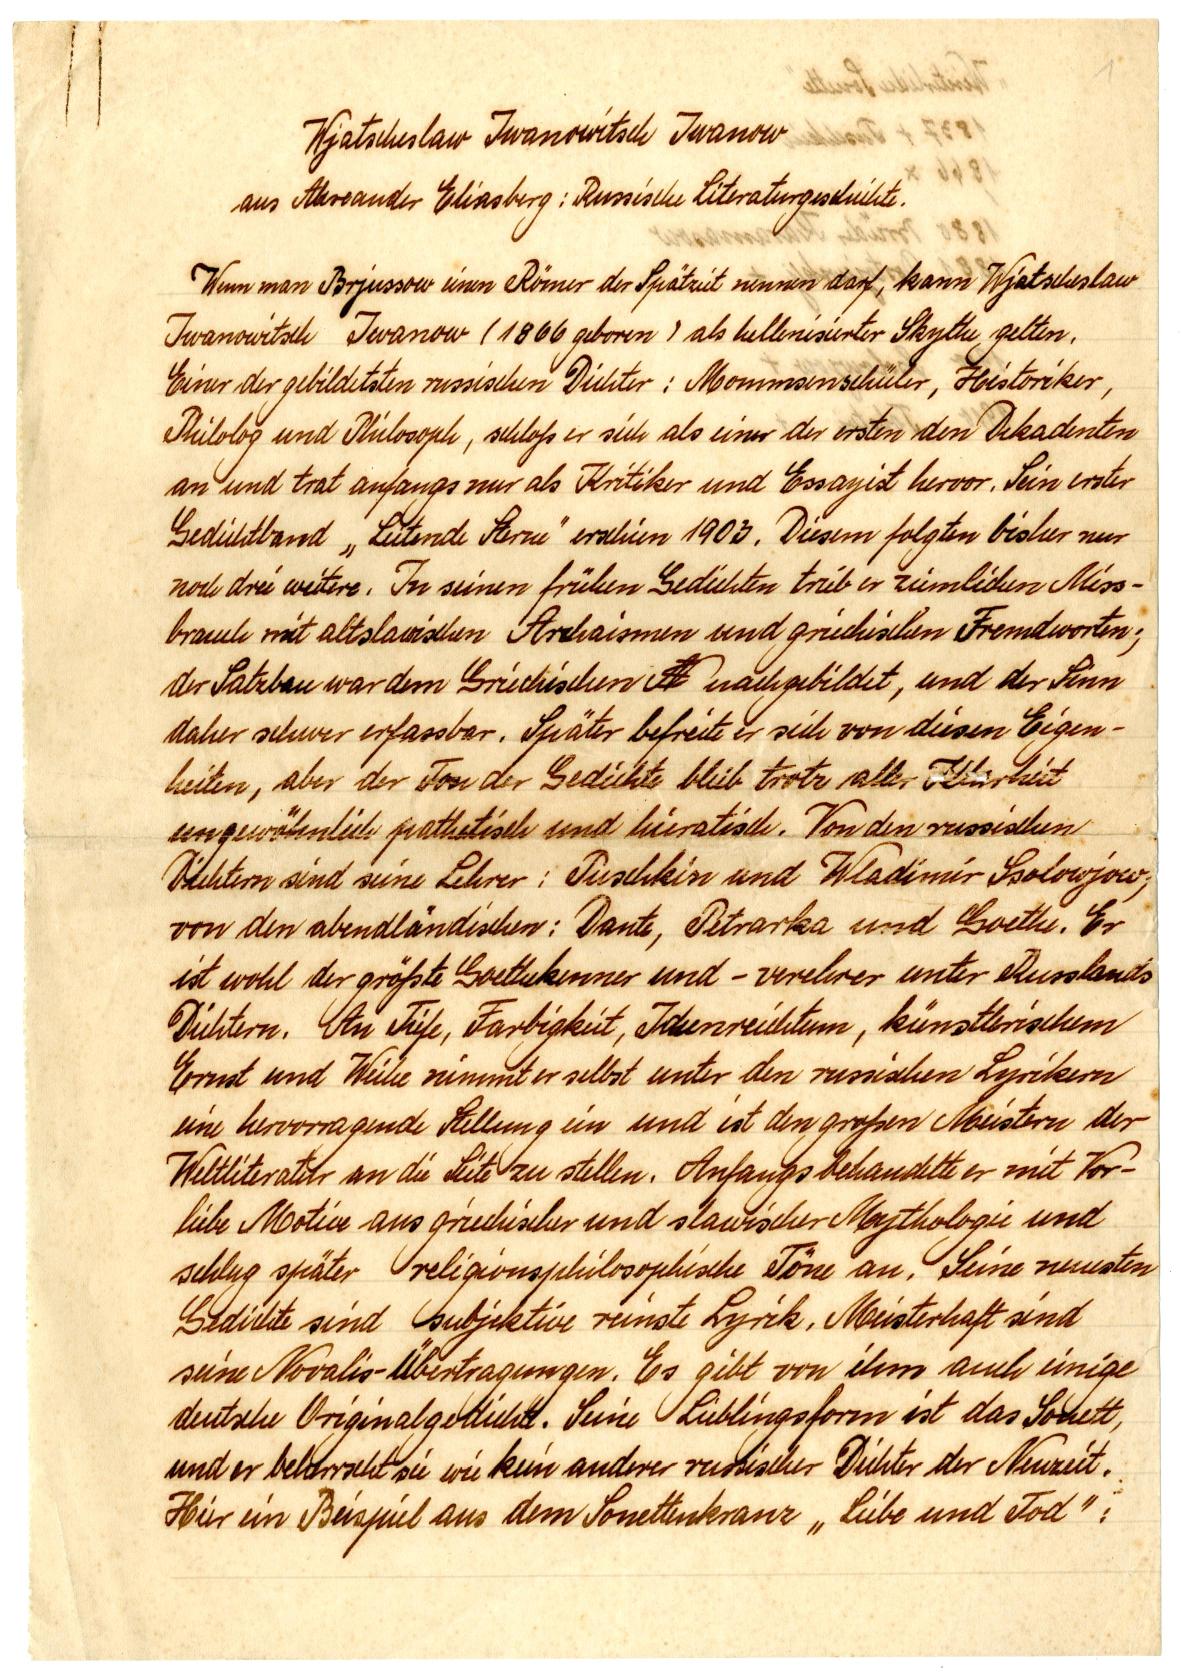 1
Wjatscheslaw Iwanowitsch Iwanow
aus Alexander Eliasberg: Russische Literaturgeschichte.
Wenn man Brjussow einen Römer der Spätzeit nennen darf, kann Wjatscheslaw
Iwanowitsch Iwanow (1866 geboren) als hellenisierter Skythe gelten.
Einer der gebildetsten russischen Dichter: Mommsenschüler, Historiker,
Philolog und Philosoph, schloß er sich als einer der ersten den Dekadenten
an und trat anfangs nur als Kritiker und Essayist hervor. Sein erster
Gedichtband „Leitende Sterne" erschien 1903. Diesem folgten bisher nur
noch drei weitere. In seinen frühen Gedichten trieb er ziemlichen Miss-
brauch mit altslavischen Archaismen und griechischen Fremdworten;
der Satzbau war dem Griechischen nachgebildet, und der Sinn
daher schwer erfassbar. Später befreite er sich von diesen Eigen-
heiten, aber der Ton der Gedichte blieb trotz aller Klarheit
ungewöhnlich pathetisch und hieratisch. Von den russischen
Dichtern sind seine Lehrer: Puschkin und Wladimir Ssolowjow;
von den abendländischen: Dante, Petrarka und Goethe. Er
ist wohl der größte Goethekenner und -verehrer unter Russlands
Dichtern. An Tiefe, Farbigkeit, Ideenreichtum, künstlerischem
Ernst und Weihe nimmt er selbst unter den russischen Lyrikern
eine hervorragende Stellung ein und ist den großen Meistern der
Weltliteratur an die Seite zu stellen. Anfangs behandelte er mit Vor-
liebe Motive aus griechischer und slawischer Mythologie und
schlug später religionsphilosophische Töne an. Seine neuesten
Gedichte sind subjektive reinste Lyrik. Meisterhaft sind
seine Novalis-Übertragungen. Es gibt von ihm auch einige
deutsche Originalgedichte. Seine Lieblingsform ist das Sonett,
und er beherrscht sie wie kein anderer russischer Dichter der Neuzeit.
Hier ein Beispiel aus dem Sonettenkranz „Liebe und Tod":